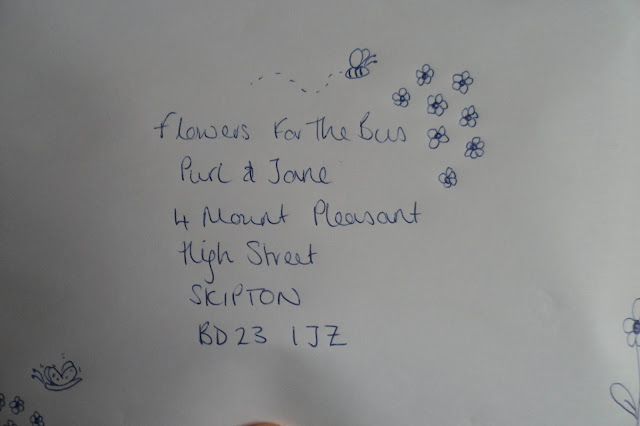 Flowers For The Bus
Purl & Jane
4 Mount Pleasant
High Street
SKIPTON
BD23 1JZ